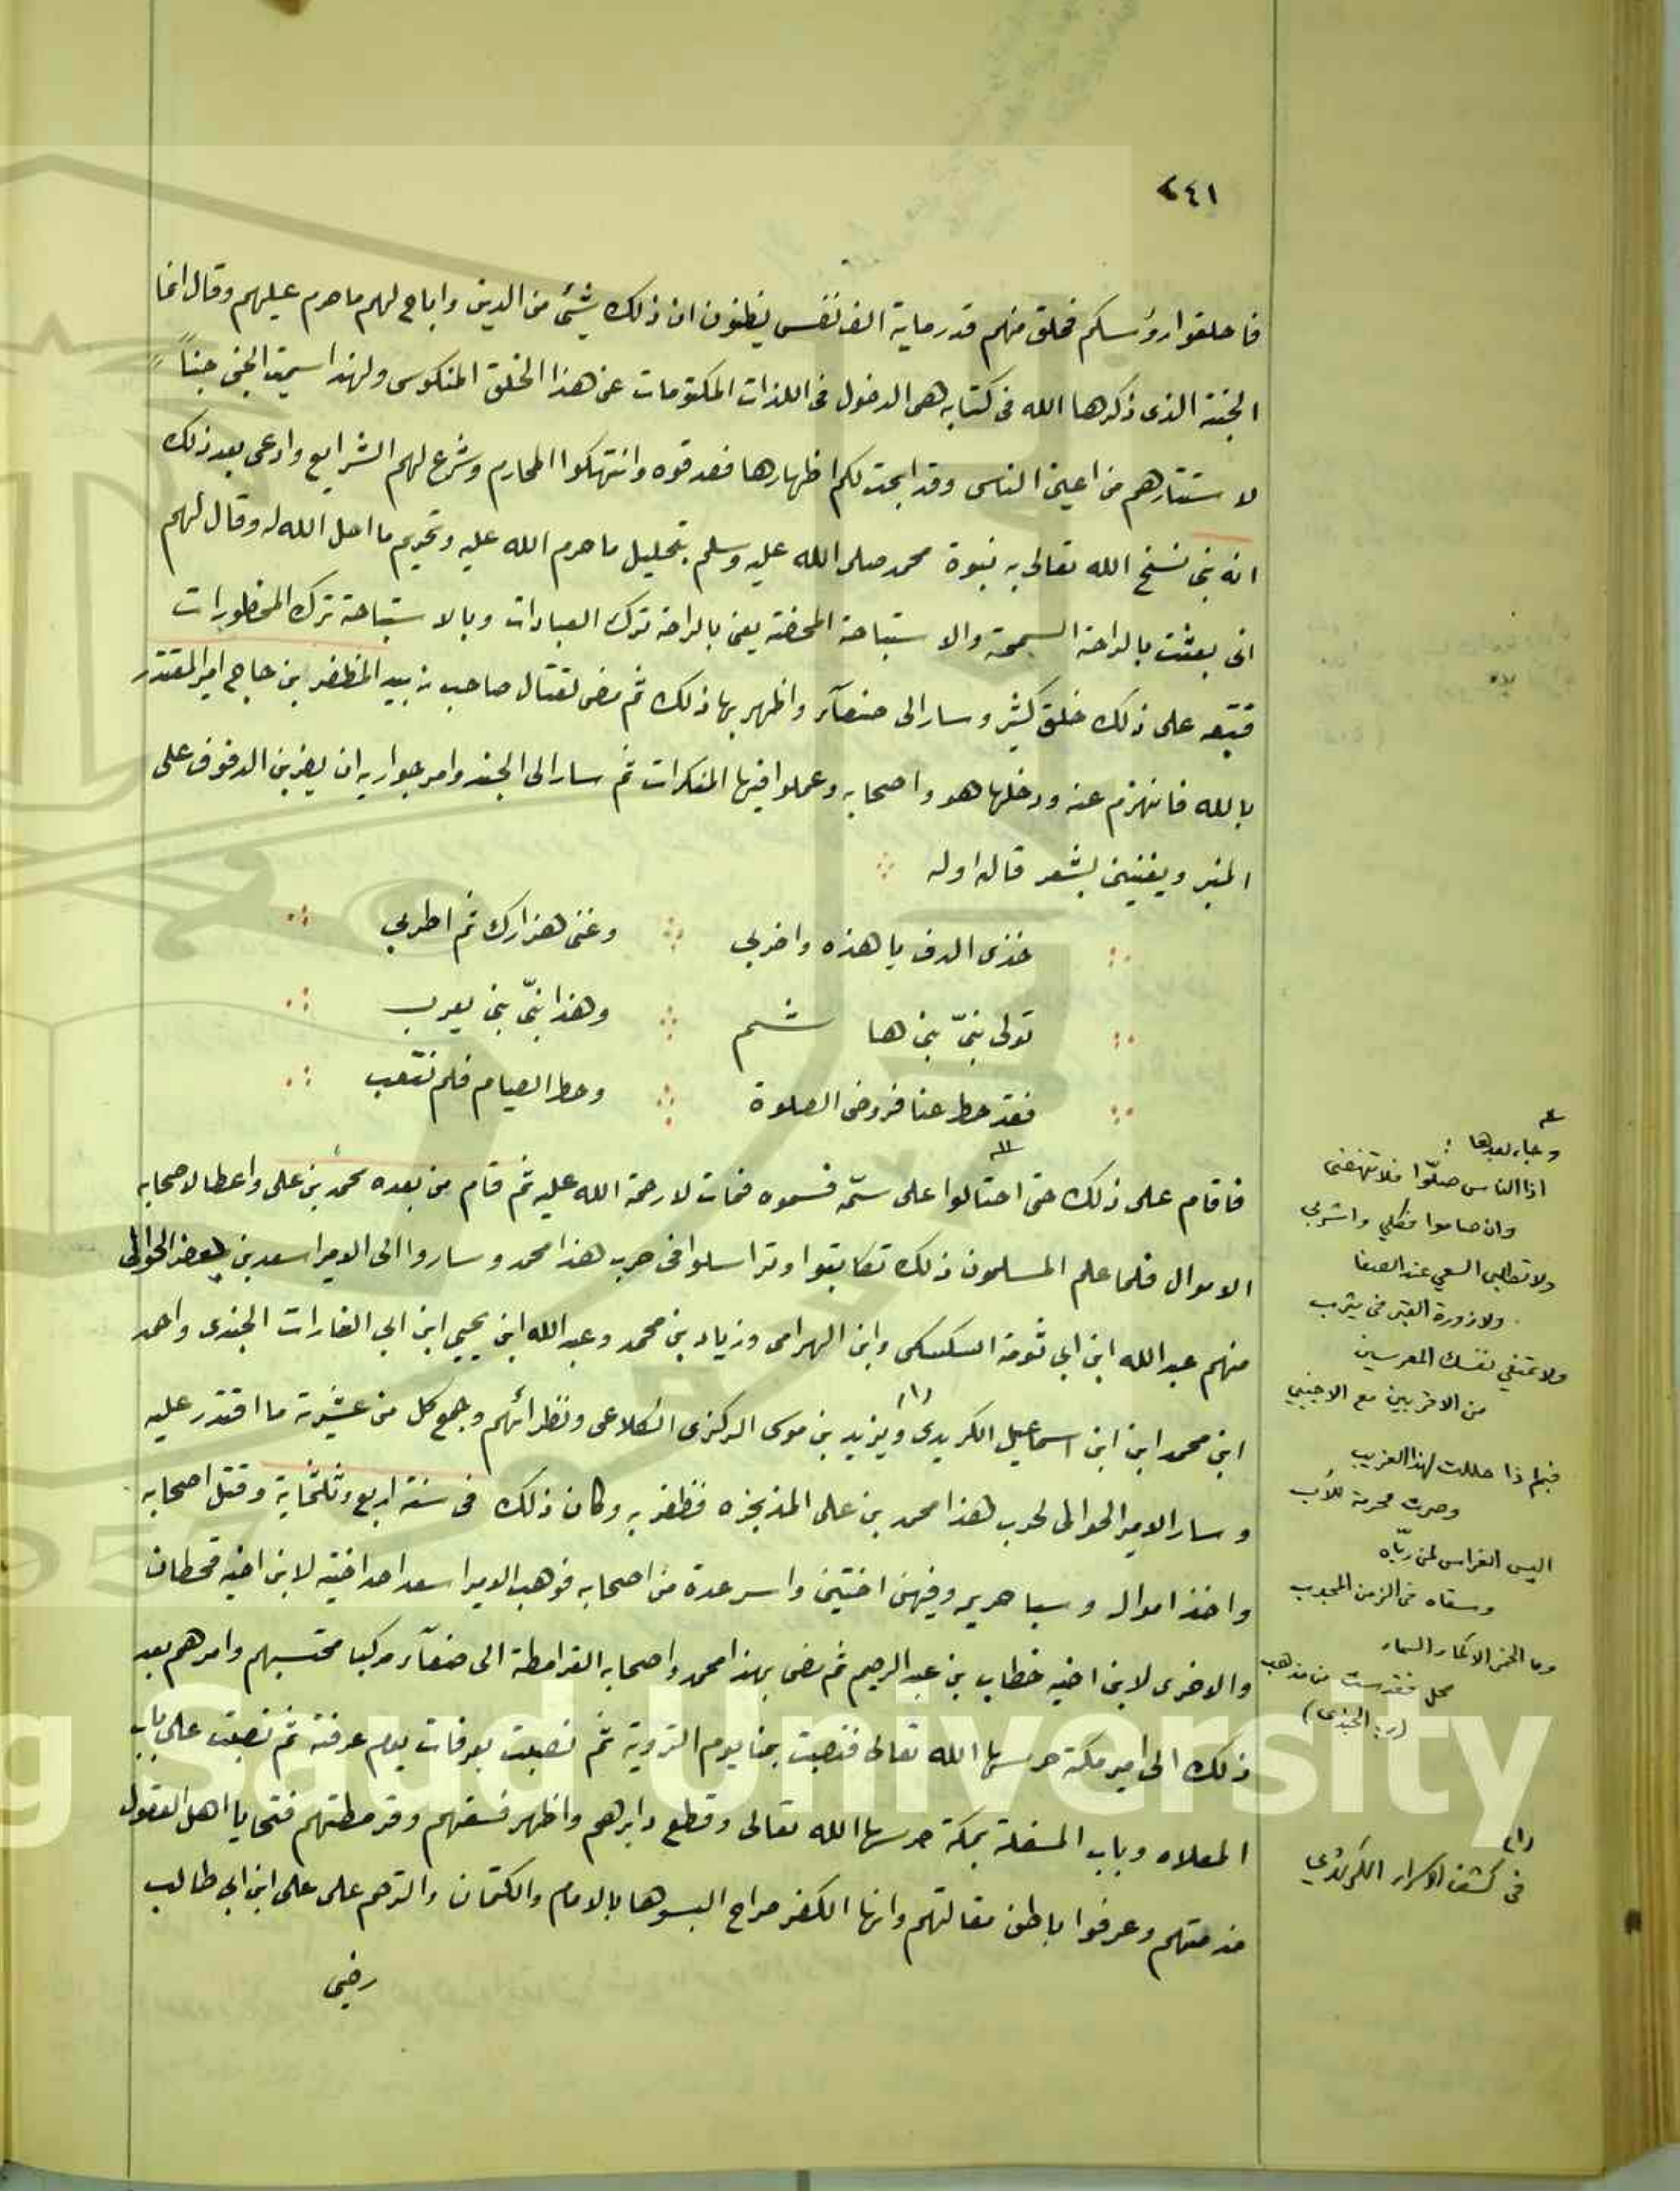 ٢٤١
فاحلقوا رؤسكم فحلق منهم قدر ماية الف نفس يظنون ان ذلك شئ من الدين واباح لهم ما حرم عليهم وقال انما
الجنة الذى ذكرها الله فى كتابه هى الدخول فى اللذات المكتومات عن هذا الخلق المنكوس ولهذا سميت الجن جناً
لاستتارهم من اعين الناس وقد ابحت لكم اظهارها فصدقوه وانتهكوا المحارم وشرع لهم الشرايع وادعى بعد ذلك
انه نبى نسخ الله تعالى به نبوة محمد صلى الله عليه وسلم بتحليل ما حرم الله عليه وتحريم ما احل الله له وقال لهم
انى بعثت بالراحة السمحة والاستباحة المحضة يعنى بالراحة ترك العبادات وبالاستباحة ترك المحظورات
فتبعه على ذلك خلق كثير وسار الى صنعآء واظهر بها ذلك ثم مضى لقتال صاحب زبيد المظفر بن حاج امير المقتدر
بالله فانهزم عنه ودخلها هو واصحابه وعملوا فيها المنكرات ثم سار الى الجند وامر جواريه ان يضربن الدفوف على
المنبر ويغنين بشعر قاله اوله
خذى الدف يا هذه واضربى وغنى هزارك ثم اطربى
تولى نبىّ بنى هاشم وهذا نبىّ بنى يعرب
فقد حط عنا فروض الصلوة وحط الصيام فلم نتعب
فاقام على ذلك حتى احتالوا على سمّه فسموه فمات لا رحمة الله عليه ثم قام من بعده محمد بن على واعطا لاصحابه
الاموال فلما علم المسلمون ذلك تكاتبوا وتراسلوا فى حرب هذا محمد وساروا الى الامير اسعد بن يعفر الحوالى
منهم عبد الله ابن ابى ثومة السكسكى وابن الهرامى وزياد بن محمد وعبد الله ابن يحيى ابن ابى الغارات الجندى واحمد
ابن محمد ابن ابن اسماعيل الكريدى (١) ويزيد بن موسى الركزى الكلاعى ونظرائهم وجمع كل من عشيرته ما اقتدر عليه
وسار الامير الحوالى لحرب هذا محمد بن على المذيخره فظفر به وكان ذلك فى سنة اربع وثلثماية وقتل اصحابه
واخذ امواله وسبا حريمه وفيهن اختين واسر عدة من اصحابه فوهب الامير اسعد احد اختيه لابن اخيه قحطان
والاخرى لابن اخيه خطاب بن عبد الرحيم ثم مضى بهذا محمد واصحابه القرامطة الى صنعآء مركبا محتسبهم وامر هم بعد
ذلك الى امير مكة حرسها الله تعالى فنصبت بمنا يوم التروية ثم نصبت بعرفات يوم عرفة ثم نصبت على باب
المعلاه وباب المسفلة بمكة حرسها الله تعالى وقطع دابرهم واظهر فسقهم وقرمطتهم فتحايا اهل العقول
مذمتهم وعرفوا باطن مقالتهم وانها الكفر صراح البسوها بالامام والكتمان والترحم على على ابن ابى طالب
رضى
وجاء بعدها :
اذا الناس صلّوا فلا تنهضى
وان صاموا فكلي واشربي
ولا تطلبى السعي عند الصفا
ولا زورة القبر فى يثرب
ولا تمنعي نفسك المعرسين
من الاقربين مع الاجنبي
فبم ذا حللت لهذا الغريب
وصرت محرمة للأب
اليس الغراس لمن ربّاه
وسقاه فى الزمن المجدب
وما الخمر الا كماء السماء
محل فقدست من مذهب
(الجندى)
(١)
فى كشف الاسرار الكريدي